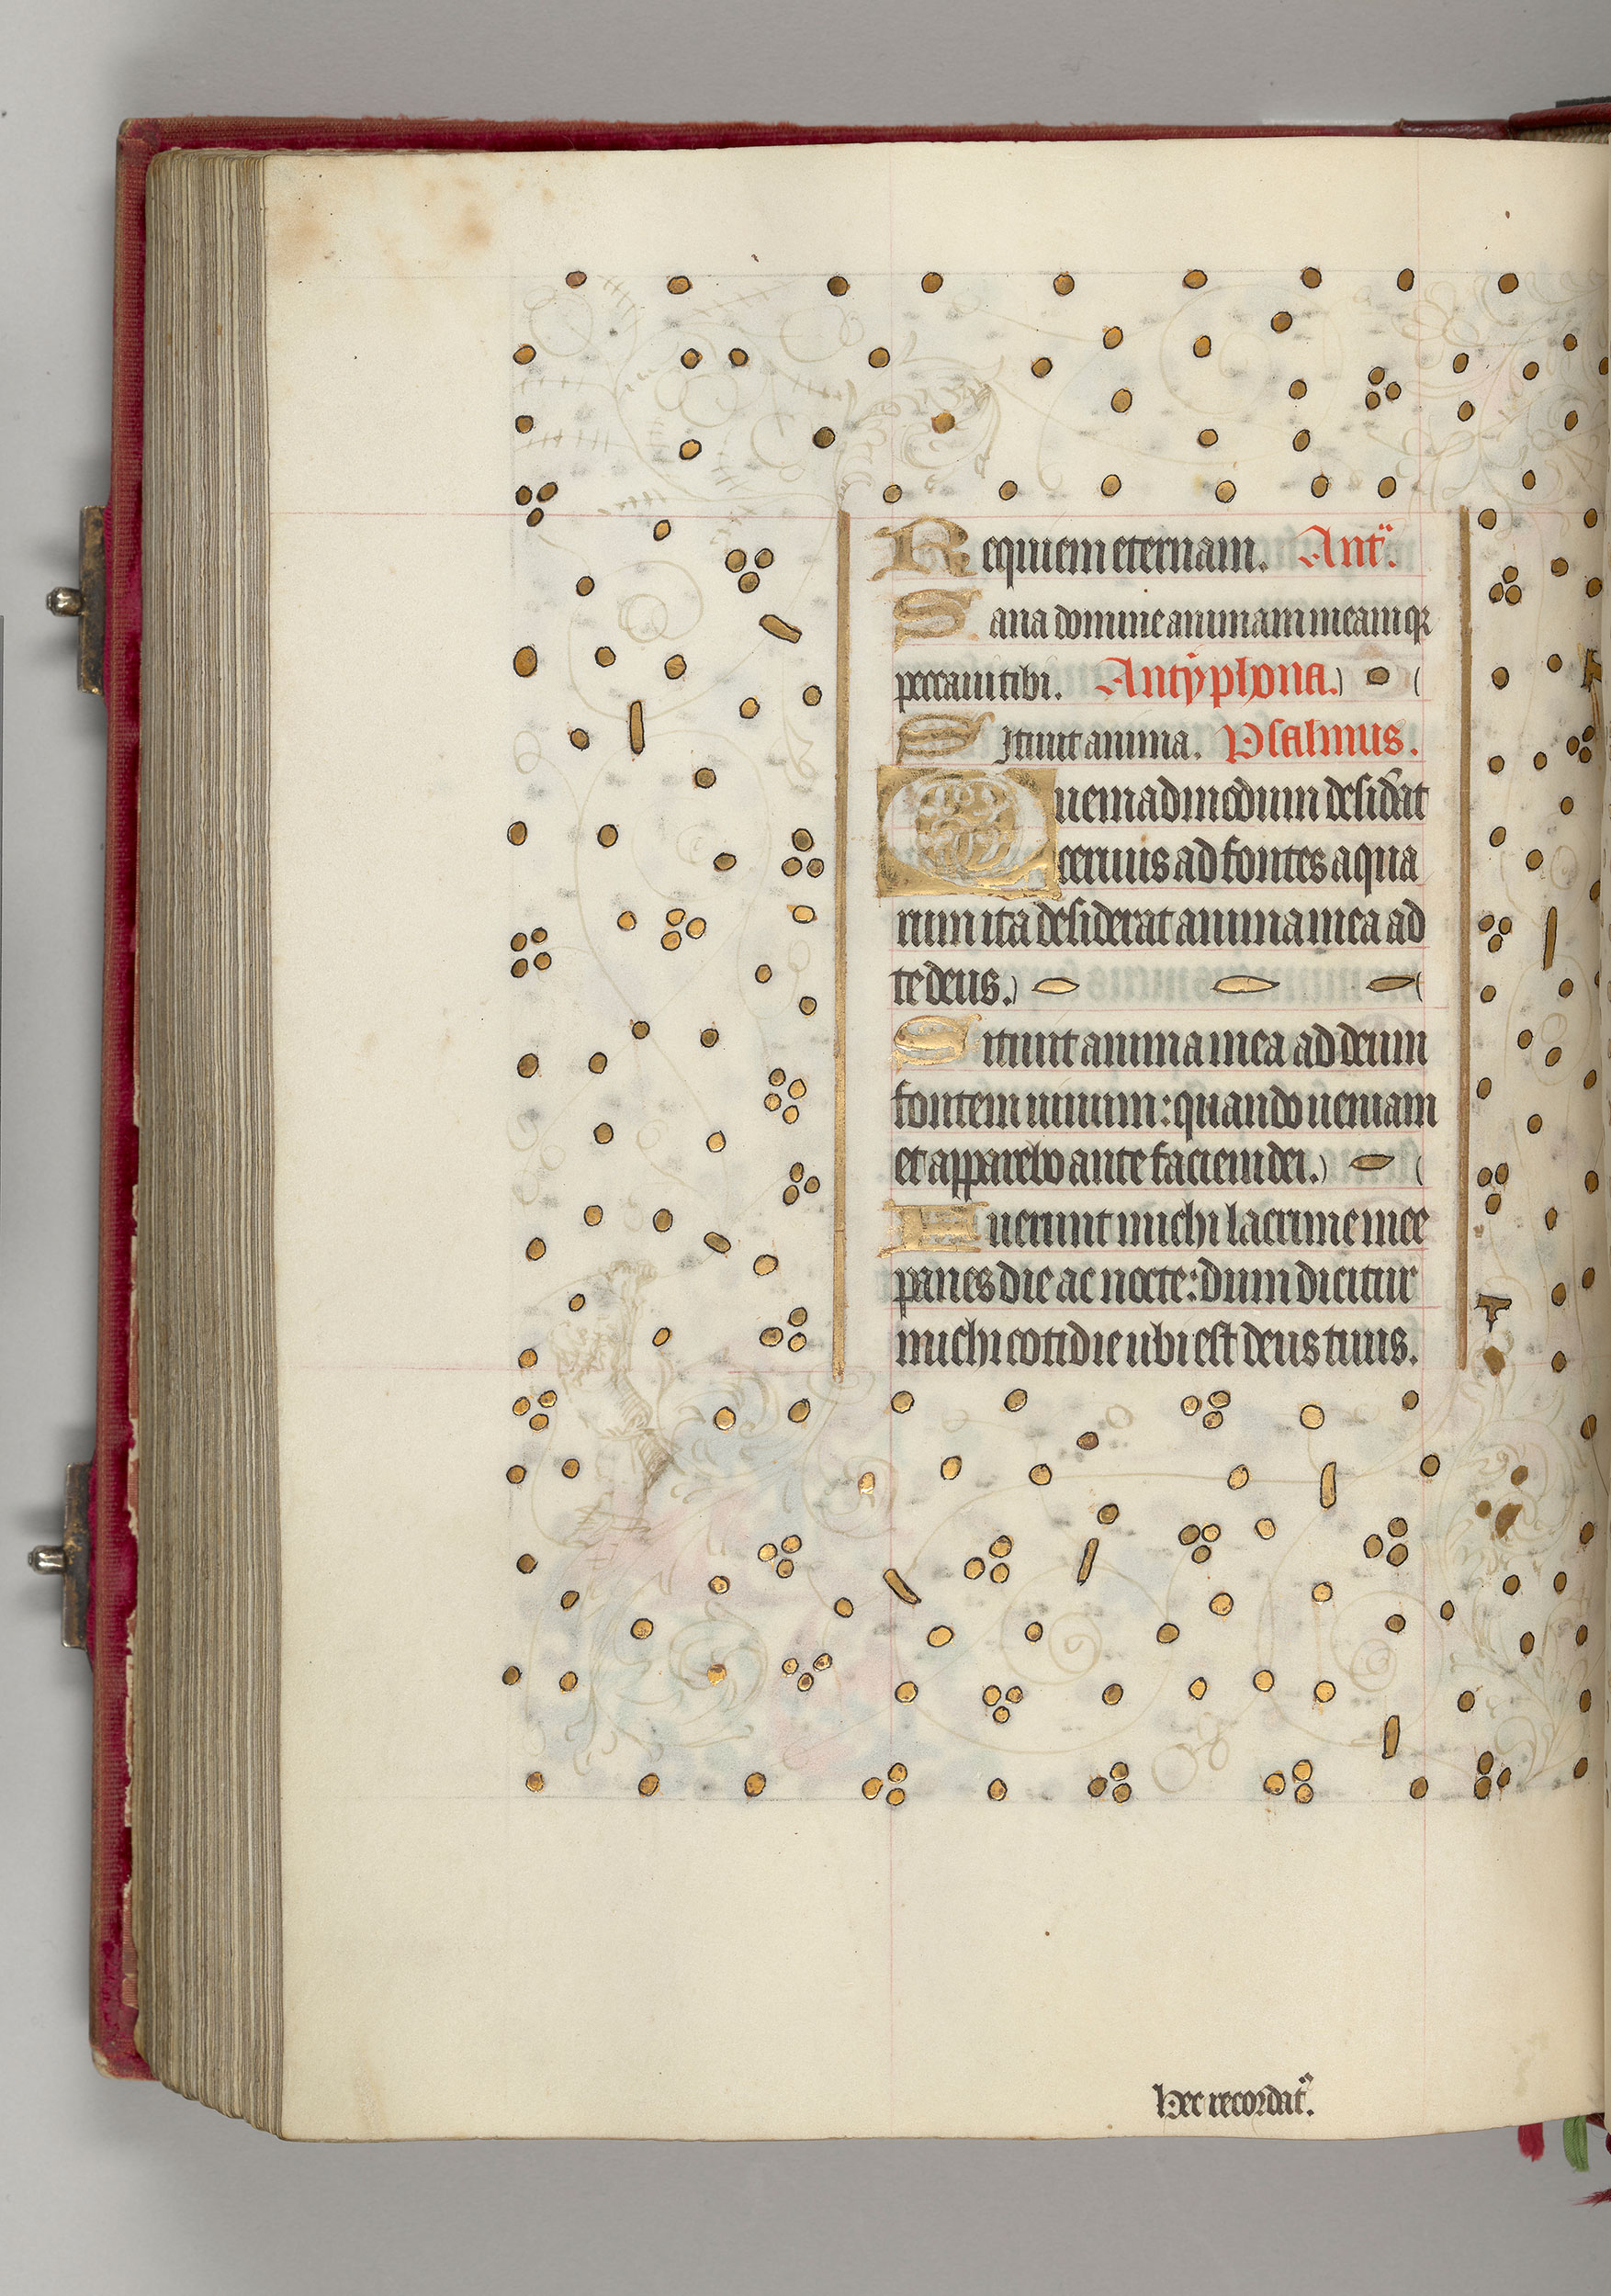 Requiem eternam. Ant̃.
Sana domine animam meam qꝛ
peccaui tibi. Antyphona.
Sitiuit anima. Psalmus.
Quemadmodum desid̉at
ceruus ad fontes aqua
rum ita desiderat anima mea ad
te deus.
Sitiuit anima mea ad deum
fontem uiuum: quando ueniam
et apparebo ante faciem dei.
Fuerunt michi lacrime mee
panes die ac nocte: dum dicitur
michi cotidie ubi est deus tuus.
Hec recordat̉.